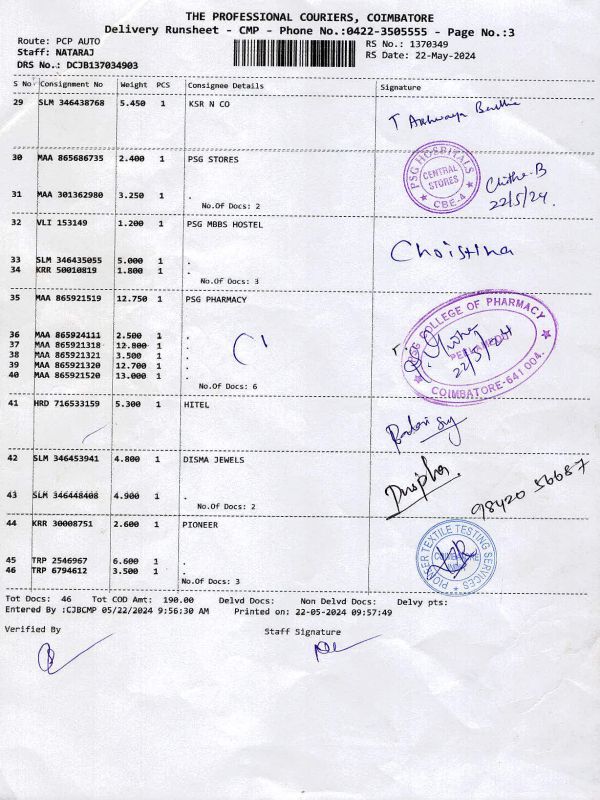 THE PROFESSIONAL COURIERS, COIMBATORE
Delivery Runsheet - CMP - Phone No.:0422-3505555 - Page No.:3
Route: PCP AUTO
Staff: NATARAJ
DRS No.: DCJB137034903
RS No.: 1370349
RS Date: 22-May-2024
S No Consignment No Weight PCS Consignee Details Signature
29 SLM 346438768 5.450 1 KSR N CO
30 MAA 865686735 2.400 1 PSG STORES
PSG HOSPITALS
CENTRAL STORES
CBE-4
Chithe.B
22/5/24.
31 MAA 301362980 3.250 1 .
No.Of Docs: 2
32 VLI 153149 1.200 1 PSG MBBS HOSTEL
Christina
33 SLM 346435055 5.000 1 .
34 KRR 50010819 1.800 1 .
No.Of Docs: 3
35 MAA 865921519 12.750 1 PSG PHARMACY
PSG COLLEGE OF PHARMACY
PEELAMEDU
COIMBATORE-641 004.
22/5/24
36 MAA 865924111 2.500 1 .
37 MAA 865921318 12.800 1 .
38 MAA 865921321 3.500 1 .
39 MAA 865921320 12.700 1 .
40 MAA 865921520 13.000 1 .
No.Of Docs: 6
41 HRD 716533159 5.300 1 HITEL
42 SLM 346453941 4.800 1 DISMA JEWELS
98420 56687
43 SLM 346448408 4.900 1 .
No.Of Docs: 2
44 KRR 30008751 2.600 1 PIONEER
PIONEER TEXTILE TESTING SERVICES
45 TRP 2546967 6.600 1 .
46 TRP 6794612 3.500 1 .
No.Of Docs: 3
Tot Docs: 46 Tot COD Amt: 190.00 Delvd Docs: Non Delvd Docs: Delvy pts:
Entered By :CJBCMP 05/22/2024 9:56:30 AM Printed on: 22-05-2024 09:57:49
Verified By Staff Signature